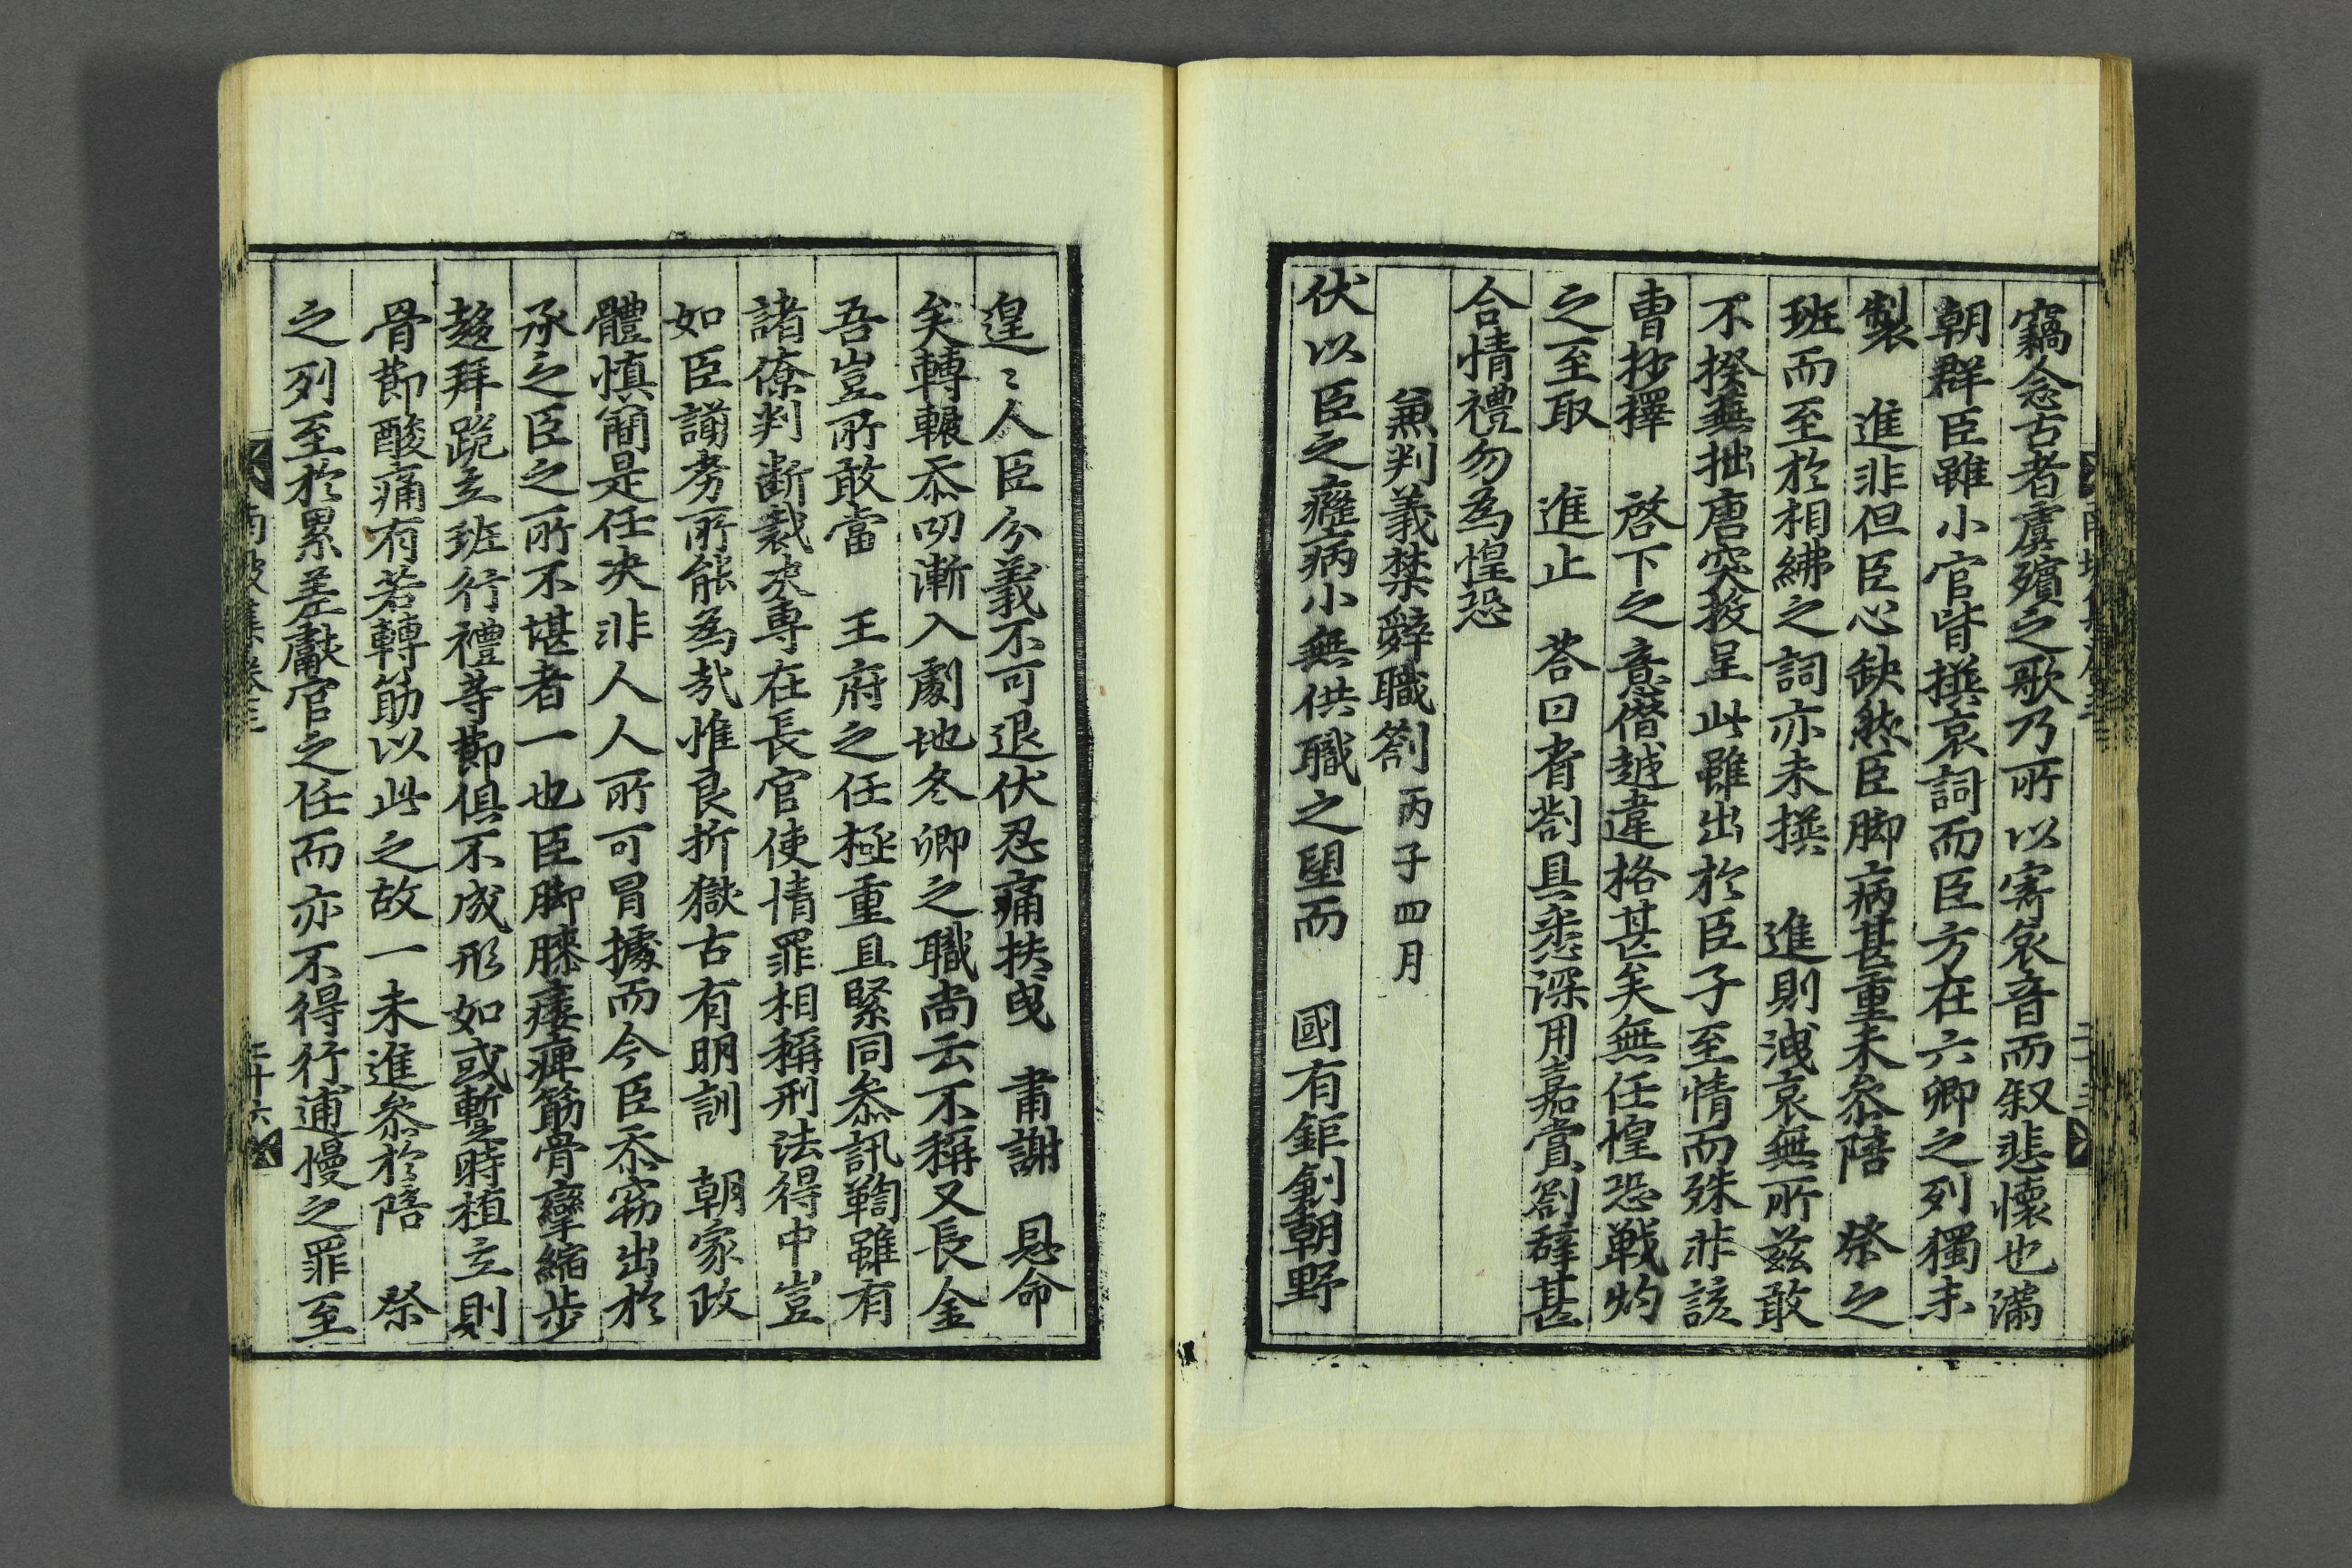 竊念古者虞殯之歌乃所以寄哀音而叙悲懷也滿
朝群臣雖小官皆撰哀詞而臣方在六卿之列獨未
製 進非但臣心缺然臣脚病甚重未叅陪 祭之
班而至於相紼之詞亦未撰 進則洩哀無所玆敢
不揆蕪拙唐突投呈此雖出於臣子至情而殊非該
曺抄擇 啓下之意僭越違格甚矣無任惶恐戰灼
之至取 進止 答曰省箚具悉深用嘉賞箚辭甚
合情禮勿爲惶恐
兼判義禁辭職箚 丙子四月
伏以臣之癃病小無供職之望而 國有鉅創朝野
遑〻人臣分義不可退伏忍痛扶曵 肅謝 恩命
矣轉輾忝叨漸入劇地冬卿之職尚云不稱又長金
吾豈所敢當 王府之任極重且緊同叅訊鞫雖有
諸僚判斷裁决專在長官使情罪相稱刑法得中豈
如臣謭劣所能爲哉惟良折獄古有明訓 朝家政
體愼簡是任决非人人所可冒據而今臣忝竊出於
承乏臣之所不堪者一也臣脚膝痿痺筋骨攣縮步
趍拜跪立班行禮等節俱不成形如或暫時植立則
骨節酸痛有若轉筋以此之故一未進叅於陪 祭
之列至於累差獻官之任而亦不得行逋慢之罪至